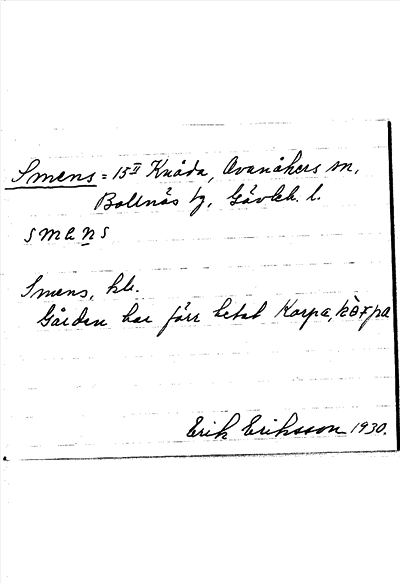 Smens = 15II Knåda, Ovanåkers sn,
Bollnäs tg, Gävleb. l.
smens
Smens, hle.
Gården har förr hetat Korpa,
Erik Eriksson 1930.